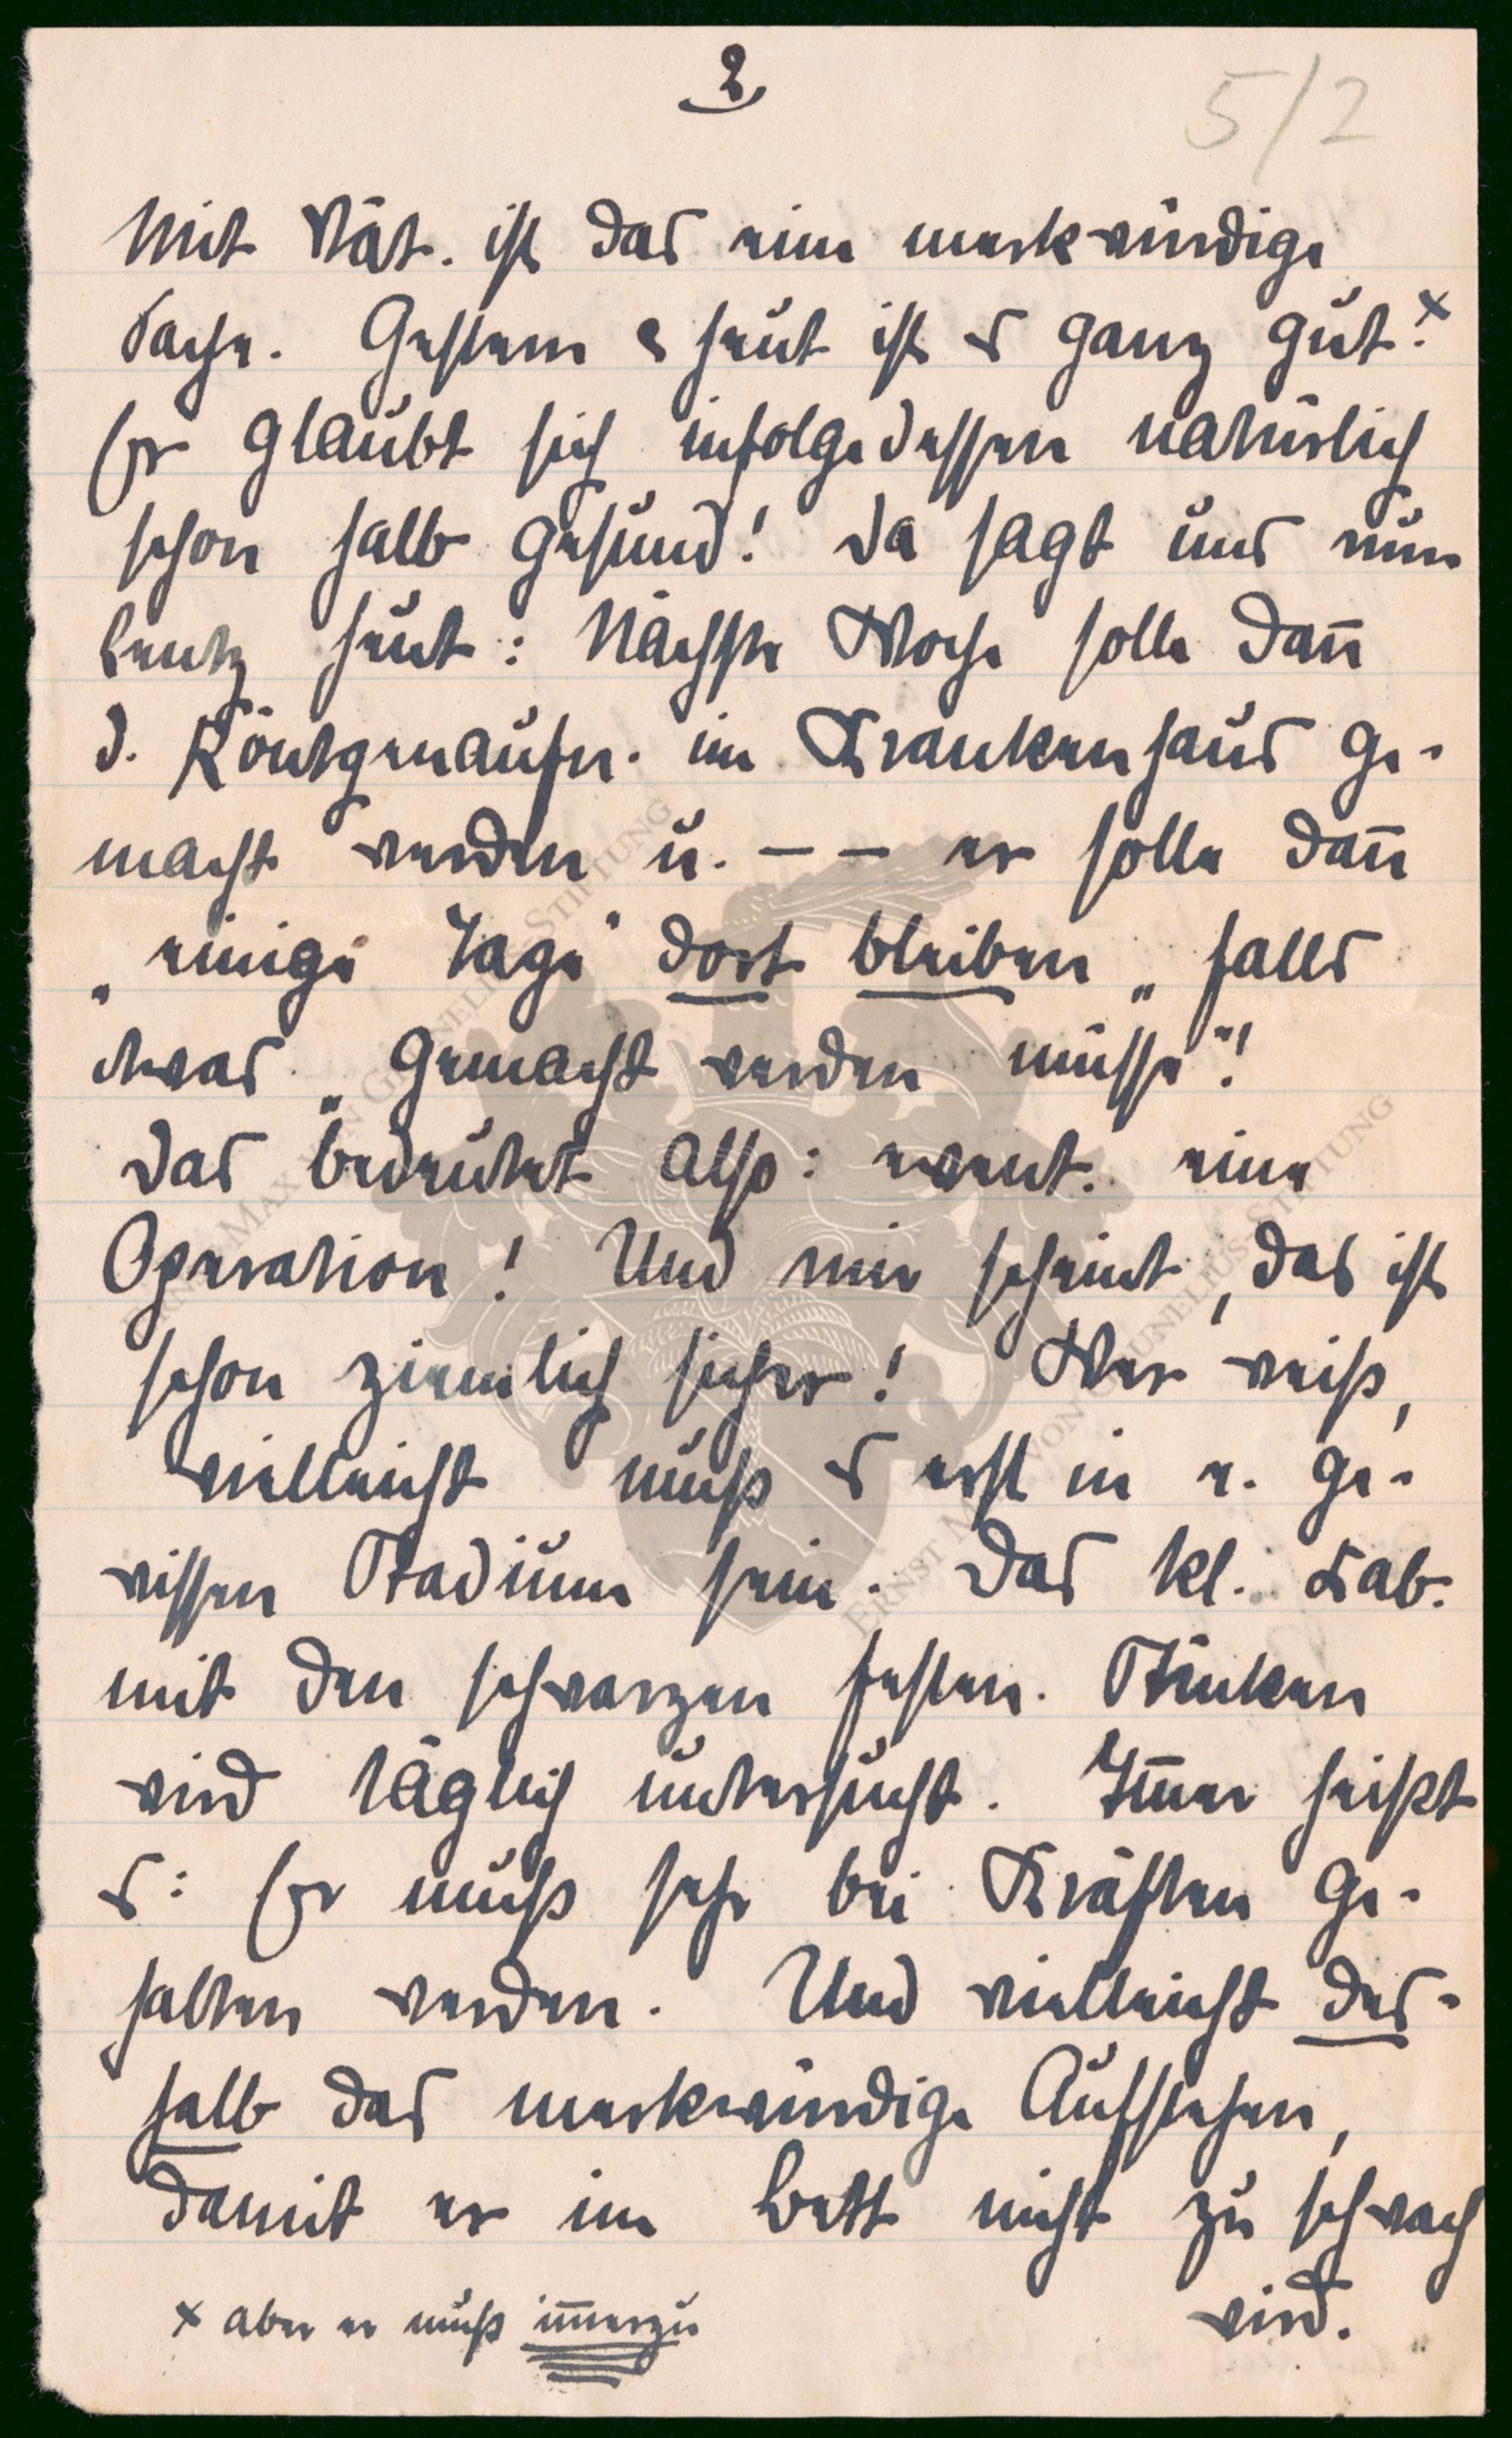 2
5/2
Mit Vät. ist das eine merkwürdige
Sache. Gestern & heut ist es ganz gut.x
Er glaubt sich infolgedessen natürlich
schon halb gesund! Da sagt uns nun
Bentz heut: Nächste Woche solle dan̄
d. Röntgenaufn. im Krankenhaus ge-
macht werden u. – – er solle dan̄
„einige Tage" dort bleiben „falls
etwas „gemacht werden müsse"!
Das bedeutet also: event. eine
Operation! Und mir scheint, das ist
schon ziemlich sicher! Wer weiß,
vielleicht muß es erst in e. ge-
wissen Stadium sein. Das kl. Lab.
mit den schwarzen festen Stücken
wird täglich untersucht. Im̄er heißt
es: Er muß sehr bei Kräften ge-
halten werden. Und vielleicht des-
halb das merkwürdige Aufstehen,
damit er im Bett nicht zu schwach
wird.
x aber er muß im̄erzu
ERNST MAX VON GRUNELIUS STIFTUNG
ERNST MAX VON GRUNELIUS-STIFTUNG